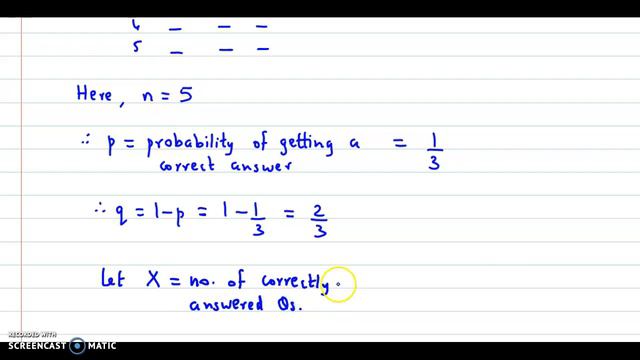 4 _ _ _
5 _ _ _
Here, n = 5
∴ p = probability of getting a = 1/3
correct answer
∴ q = 1-p = 1 - 1/3 = 2/3
Let X = no. of correctly
answered Qs.
RECORDED WITH
SCREENCAST MATIC